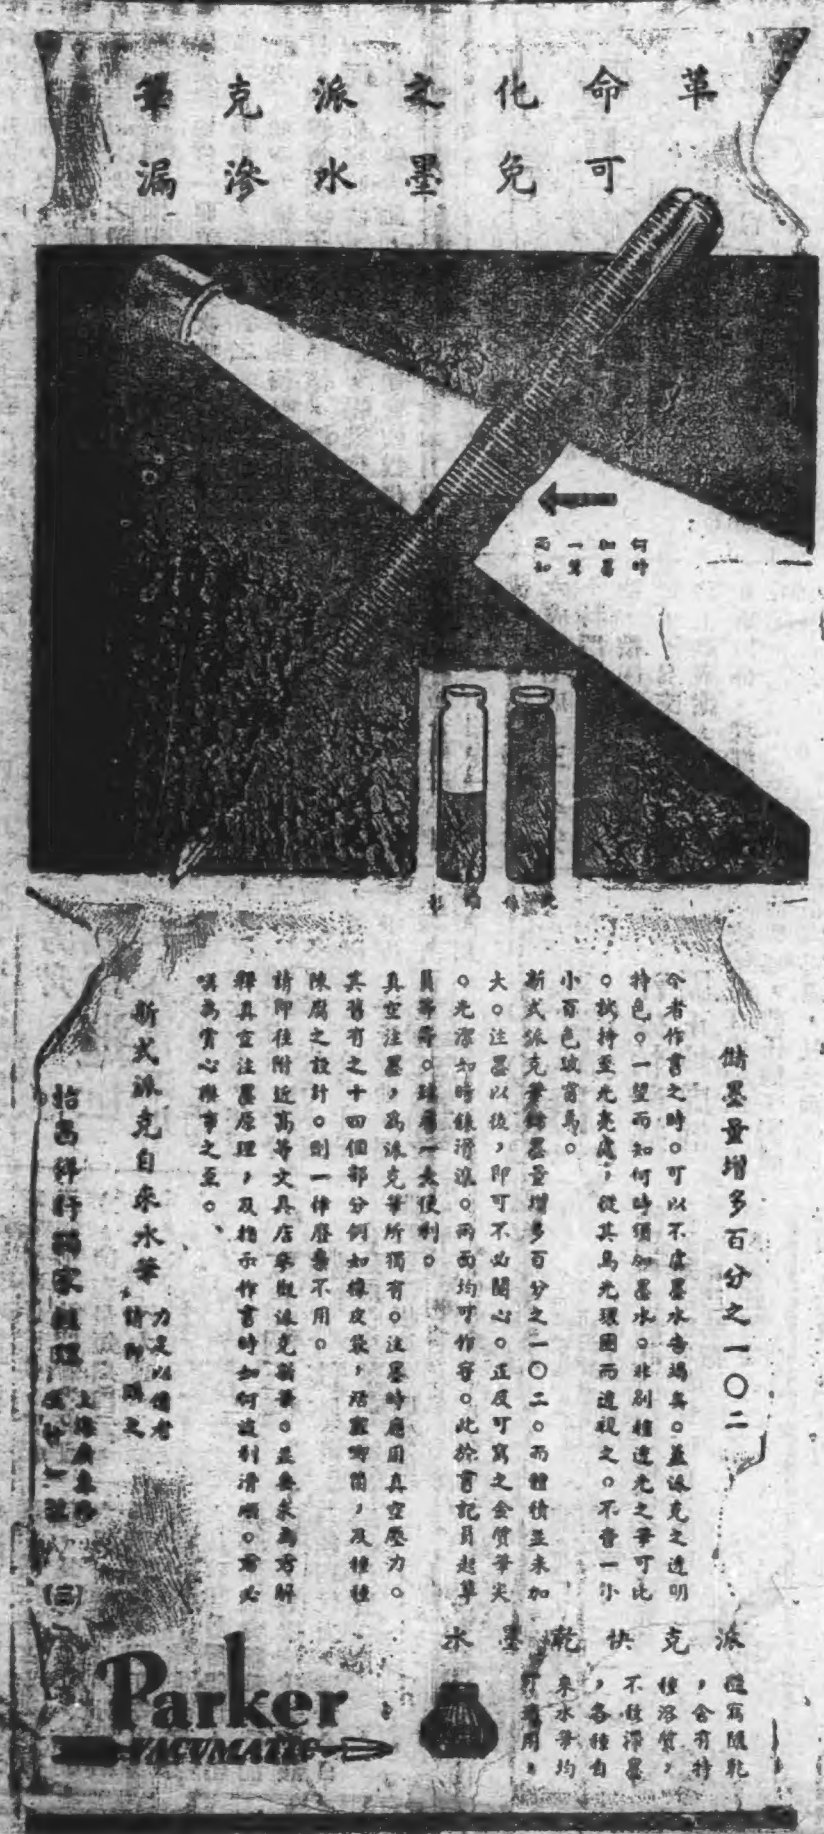 革命化文派克筆
可免墨水滲漏
何時
加墨
一望
而知
儲墨量增多百分之一〇二
今者作書之時。可以不虞墨水告竭矣。蓋派克之透明
特色。一望而知何時須加墨水。非別種透光之筆可比
。試持至光亮處，從其烏光環圈而透視之。不啻一小
小百色玻窗焉。
新式派克筆儲墨量增多百分之一〇二。而體積並未加
大。注墨以後，即可不必關心。正反可寫之金質筆尖
。光潔如時錶滑滾。兩面均可作字。此於書記員起草
員等等。
真空注墨，為派克筆所獨有。注墨時應用真空壓力。
其舊有之十四個部分例如橡皮袋，活塞唧筒，及種種
陳腐之設計。則一律廢棄不用。
請即往附近高等文具店參觀派克新筆。並要求為君解
釋真空注墨原理，及指示作書時如何流利滑順。君必
嘆為賞心樂事之至。
新式派克自來水筆
力足以備者
請即購之
怡昌祥行獨家經理
上海廣東路
(三)
派克快乾墨水
隨寫隨乾
，含有特
種溶質，
不致滯墨
，各種自
來水筆均
可適用。
Parker
VACUMATIC